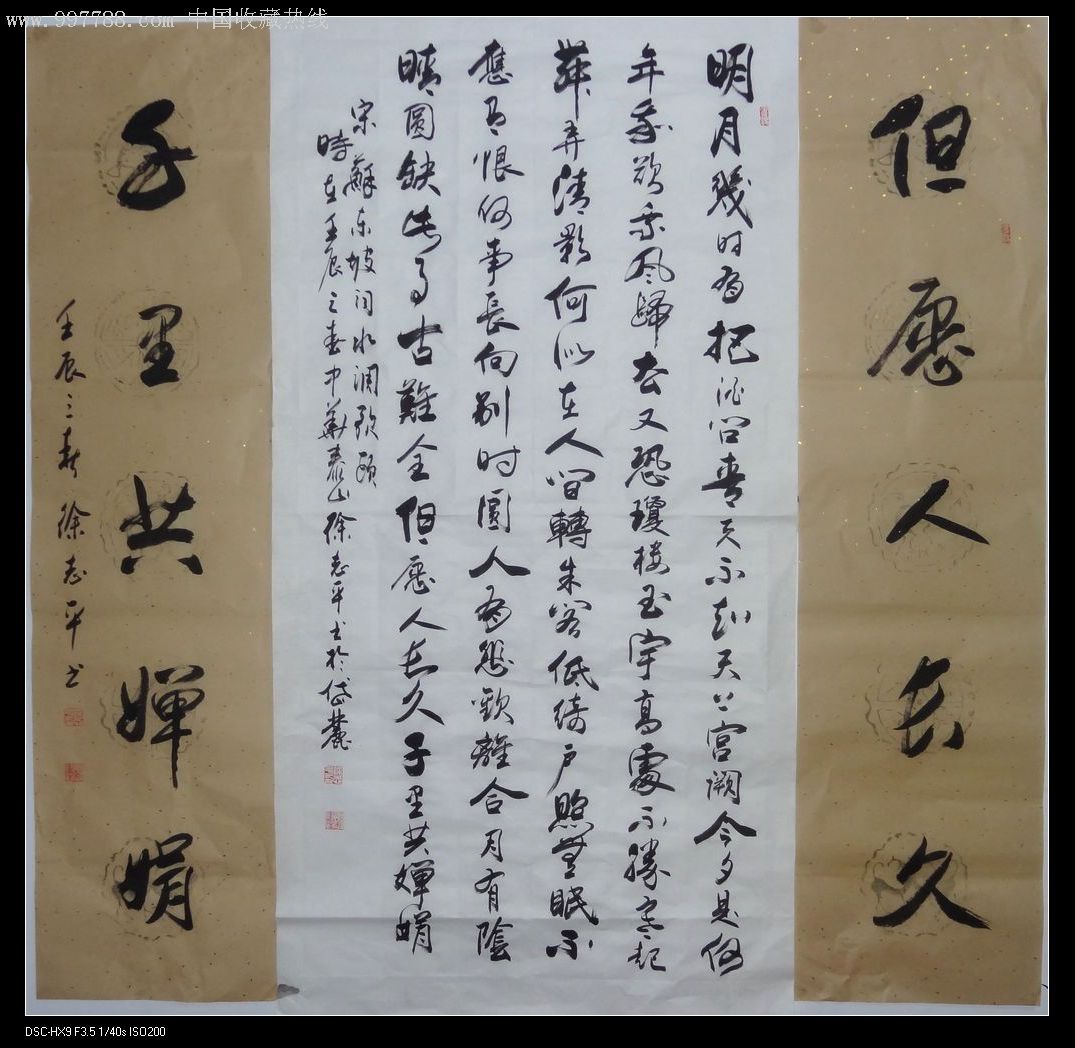 www.997788.com 中国收藏热线
但愿人长久
明月幾时有把酒问青天不知天上宫阙今夕是何
年我欲乘风歸去又恐瓊楼玉宇高處不勝寒起
舞弄清影何似在人间轉朱阁低绮户照無眠不
應有恨何事長向别时圓人有悲歡離合月有陰
晴圆缺此事古難全但愿人长久千里共婵娟
宋蘇东坡词水调歌頭
時在壬辰之春中華泰山徐志平书於岱麓
千里共婵娟
壬辰之春徐志平书
DSC-HX9 F3.5 1/40s ISO200